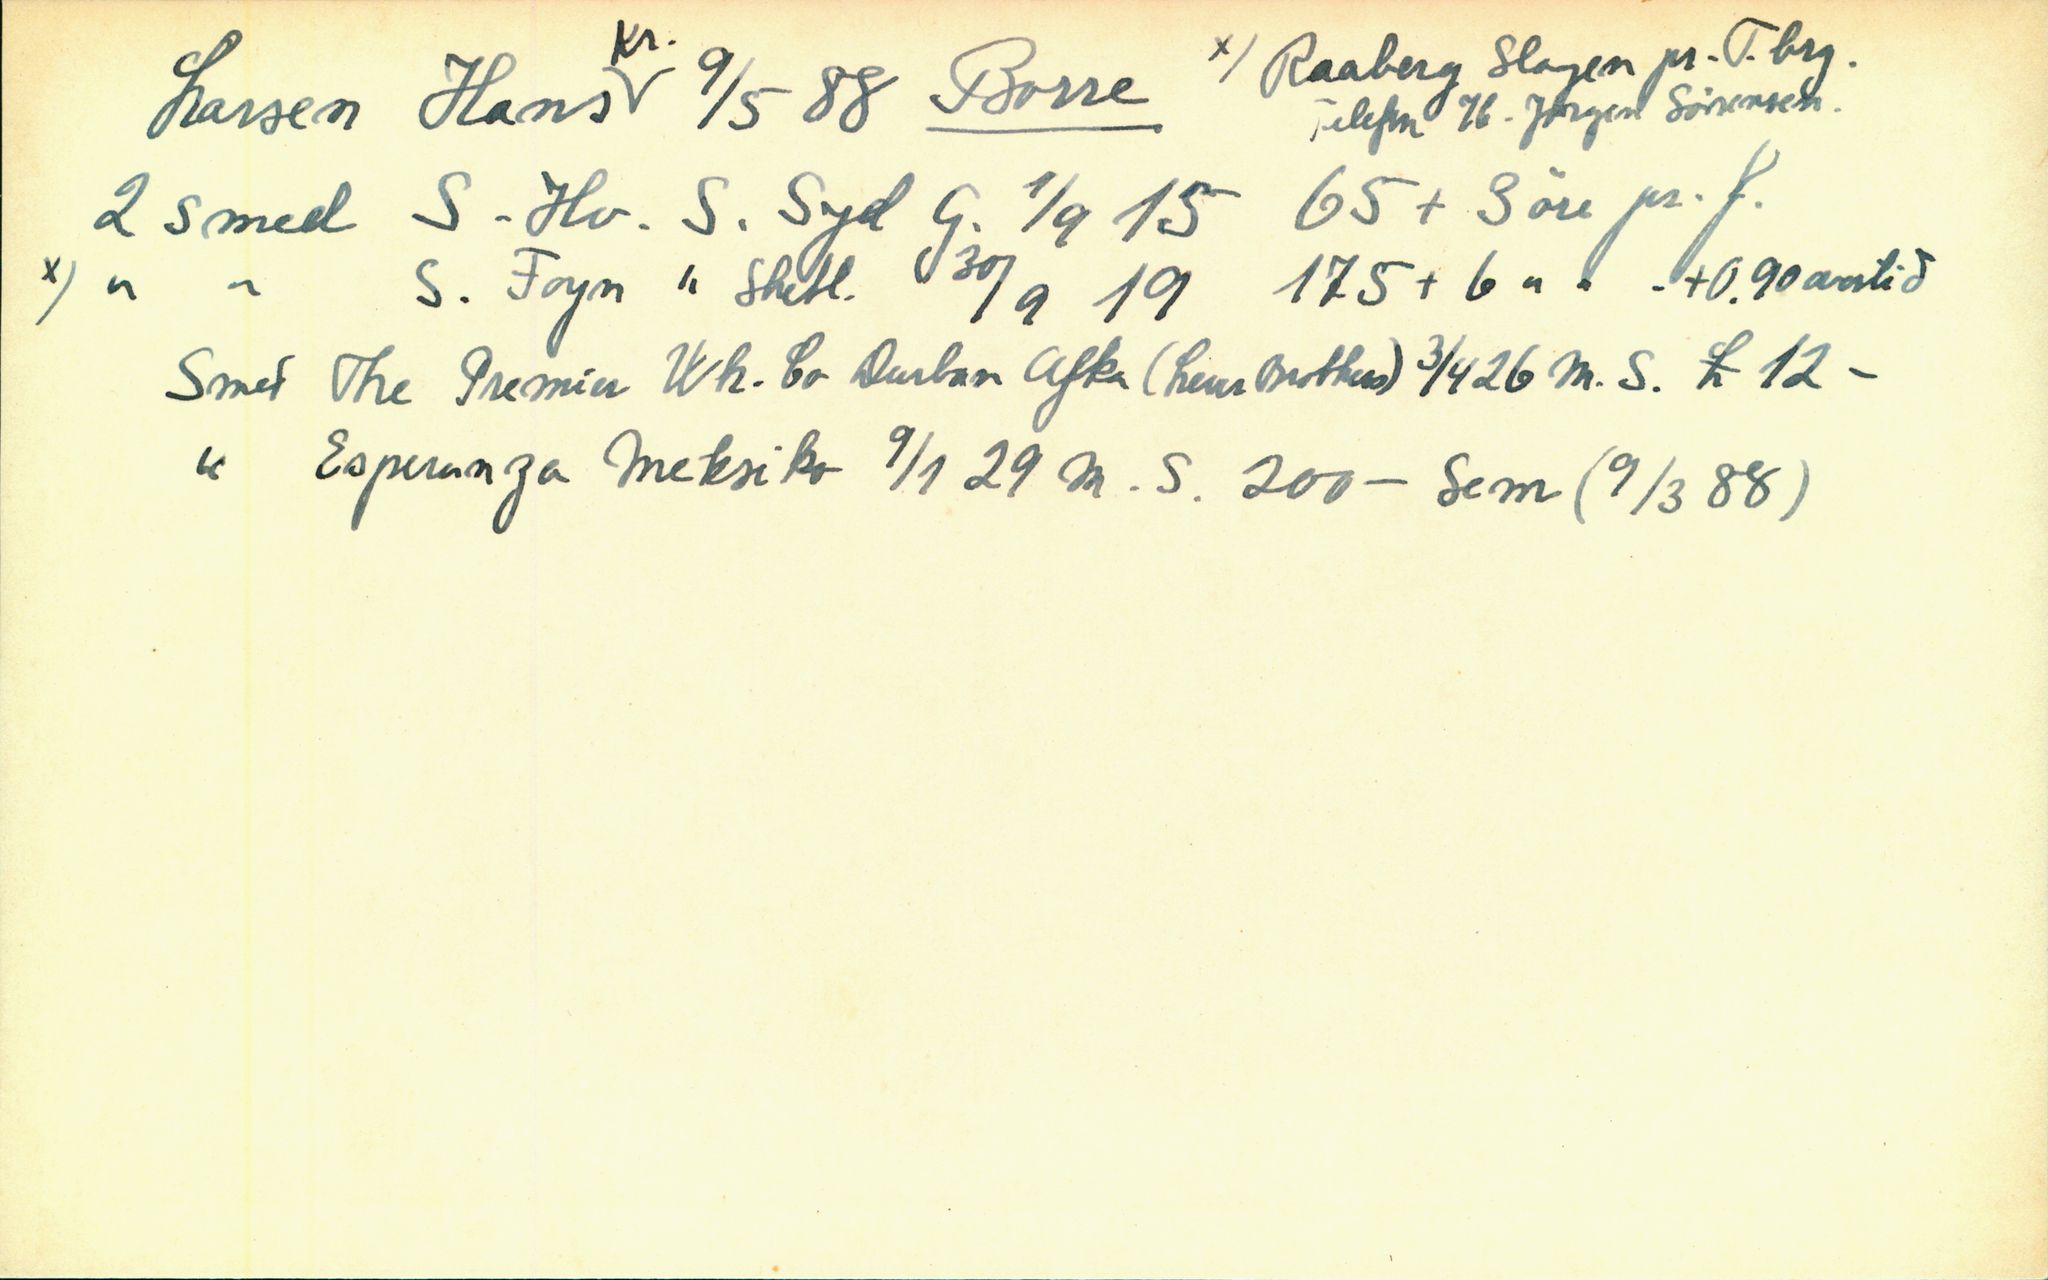 Larsen Hans Kr. 9/5 88 Borre x) Raaberg Slagen pr. T.brg.
Telefon 76 - Jørgen Sörensen.
2 smed S - Hv. S. Syd G. 1/9 15 65 + 3 öre pr. f.
x) " " S. Foyn " Shetl. 30/9 19 175 + 6 " " " +0.90 overtid
Smed The Premier Wh. Co Durban Afka (Lever Brothers) 3/4 26 M. S. £ 12 -
" Esperanza Meksiko 9/1 29 M. S. 200 - Sem (9/3 88)